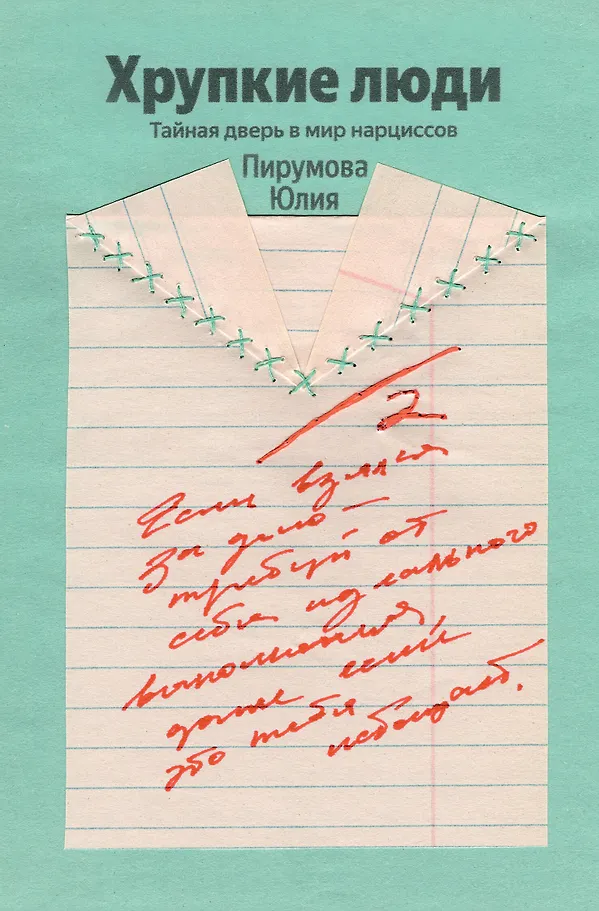 Хрупкие люди
Тайная дверь в мир нарциссов
Пирумова
Юлия
2
Если взялся
за дело –
требуй от
себя идеального
выполнения
даже если
это тебя